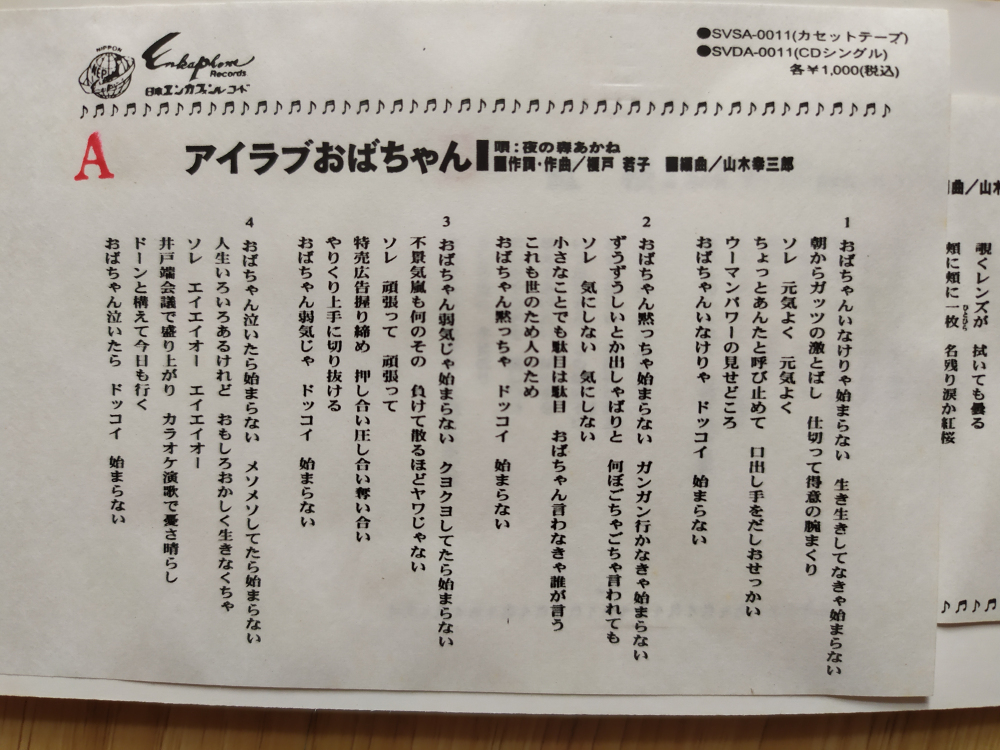 NIPPON
Enkaphone
Records
日本エンカフォンレコード
●SVSA-0011(カセットテープ)
●SVDA-0011(CDシングル)
各¥1,000(税込)
A
アイラブおばちゃん
唄:夜の森あかね
■作詞・作曲/榎戸 若子 ■編曲/山木幸三郎
1 おばちゃんいなけりゃ始まらない 生き生きしてなきゃ始まらない
朝からガッツの激とばし 仕切って得意の腕まくり
ソレ 元気よく 元気よく
ちょっとあんたと呼び止めて 口出し手をだしおせっかい
ウーマンパワーの見せどころ
おばちゃんいなけりゃ ドッコイ 始まらない
2 おばちゃん黙っちゃ始まらない ガンガン行かなきゃ始まらない
ずうずうしいとか出しゃばりと 何ぼごちゃごちゃ言われても
ソレ 気にしない 気にしない
小さなことでも駄目は駄目 おばちゃん言わなきゃ誰が言う
これも世のため人のため
おばちゃん黙っちゃ ドッコイ 始まらない
3 おばちゃん弱気じゃ始まらない クヨクヨしてたら始まらない
不景気嵐も何のその 負けて散るほどヤワじゃない
ソレ 頑張って 頑張って
特売広告握り締め 押し合い圧し合い奪い合い
やりくり上手に切り抜ける
おばちゃん弱気じゃ ドッコイ 始まらない
4 おばちゃん泣いたら始まらない メソメソしてたら始まらない
人生いろいろあるけれど おもしろおかしく生きなくちゃ
ソレ エイエイオー エイエイオー
井戸端会議で盛り上がり カラオケ演歌で憂さ晴らし
ドーンと構えて今日も行く
おばちゃん泣いたら ドッコイ 始まらない
曲/山木
覗くレンズが 拭いても曇る
頬に頬に一枚 名残り涙か紅桜